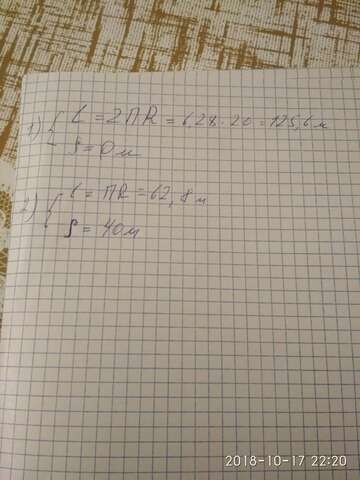 1) { L = 2ПR = 6,28 · 20 = 125,6 м
S = 0 м
2) { L = ПR = 62,8 м
S = 40 м
2018-10-17 22:20